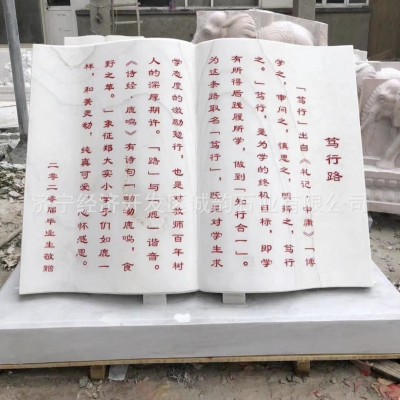 笃行路
「笃行」出自《礼记·中庸》「博
学之，审问之，慎思之，明辨之，笃行
之。」「笃行」是为学的终极目标，即学
有所得后践履所学，做到「知行合一」。
为这条路取名「笃行」，既是对学生求
学态度的激励勉行，也是教师百年树
人的深厚期许。「路」与「鹿」谐音。
《诗经·鹿鸣》有诗句「呦呦鹿鸣，食
野之苹。」象征郑大实小学子们如鹿一
样，和美灵动，纯真可爱，感怀感恩。
二零二零届毕业生敬赠
济宁经济开发区诚韵石业有限公司